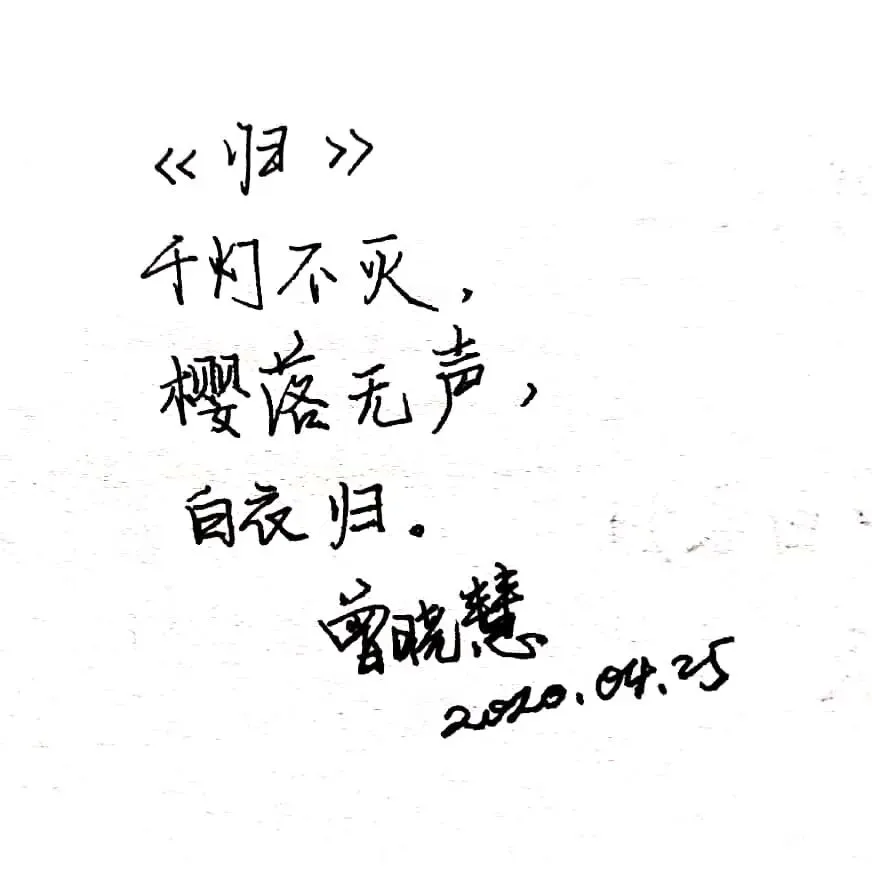 《归》
千灯不灭，
樱落无声，
白衣归。
曾晓慧
2020.04.25